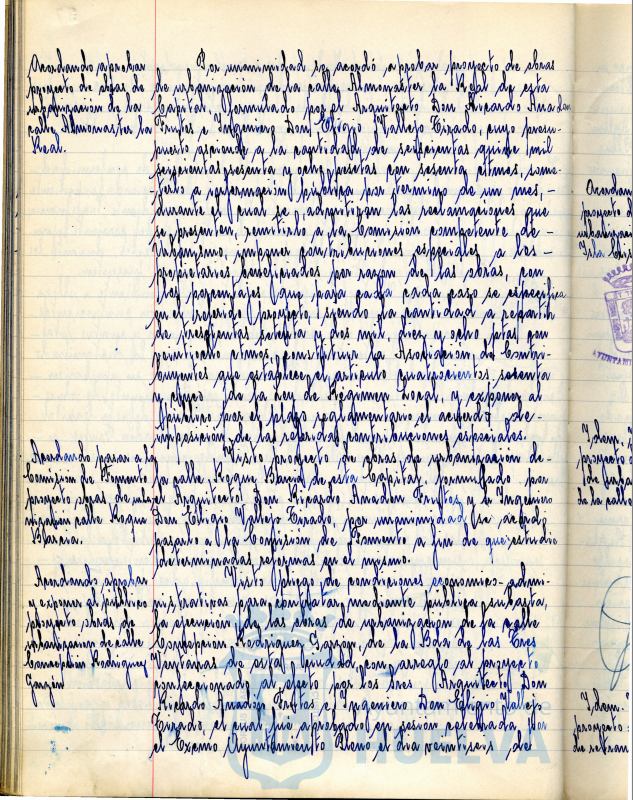 Acordando aprobar
proyecto de obras de
urbanizacion de la
calle Almonaster la
Real.
Por unanimidad se acordó aprobar proyecto de obras
de urbanizacion de la calle Almonaster la Real de esta
Capital, formulado por el Arquitecto Don Ricardo Anadon
Frutos e Ingeniero Don Eligio Vallejo Tirado, cuyo presu-
puesto asciende a la cantidad de seiscientas quince mil
seiscientas sesenta y ocho pesetas con sesenta ctmos, some-
terlo a informacion publica por termino de un mes, -
durante el cual se admitiran las reclamaciones que
se presenten, remitirlo a la Comision competente de -
urbanismo, imponer contribuciones especiales a los -
propietarios beneficiados por razon de las obras, con
los porcentajes que para cada caso se especifica
en el referido proyecto, siendo la cantidad a repartir
de trescientas setenta y dos mil, diez y ocho ptas con
veintiocho ctmos, constituir la Asociacion de Contri-
buyentes que establece el articulo cuatrocientos sesenta
y cinco de la Ley de Régimen Local, y exponer al
público por el plazo reglamentario el acuerdo de -
imposicion de las referidas contribuciones especiales.
Acordando pasar a la
Comision de Fomento
proyecto obras de urba
nizacion calle Roque
Barcia.
Visto proyecto de obras de urbanizacion de-
la calle Roque Barcia de esta Capital, formulado por
el Arquitecto Don Ricardo Anadon Frutos y e Ingeniero
Don Eligio Vallejo Tirado, por unanimidad se acordó
pasarlo a la Comision de Fomento a fin de que estudie
determinadas reformas en el mismo.
Acordando aprobar
y exponer al público
proyecto obras de
urbanizacion de calle
Concepción Rodriguez
Garzón
Visto pliego de condiciones economico-admi-
nistrativas para contratar mediante pública subasta,
la ejecucion de las obras de urbanizacion de la calle
Concepcion Rodriguez Garzon, de la Bda de las Tres
Ventanas de esta Ciudad, con arreglo al proyecto
confeccionado al efecto por los Sres Arquitecto Don
Ricardo Anadon Frutos e Ingeniero Don Eligio Vallejo
Tirado, el cual fué aprobado en sesion celebrada por
el Excmo Ayuntamiento Pleno el dia veintiseis de
HUELVA
Acordan
proyecto d
urbanizaci
Isla Cris
AYUNTAMI
Idem.
proyecto
de la calle
Idem.
proyecto